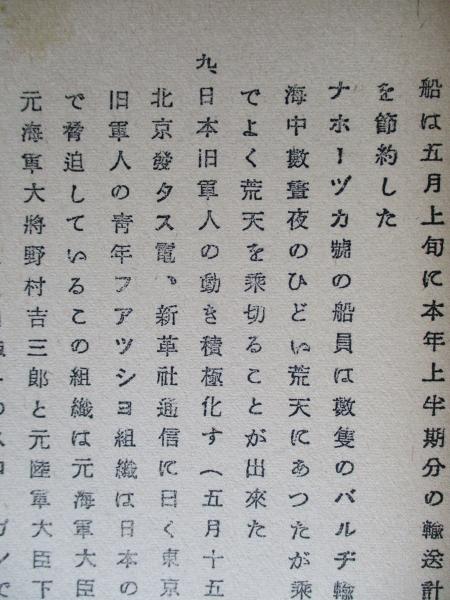 船は五月上旬に本年上半期分の輸送計
を節約した
ナホーヅカ號の船員は数隻のバルヂ輸
海中數晝夜のひどい荒天にあつたが乗
でよく荒天を乘切ることが出来た
九、日本旧軍人の動き積極化す（五月十五
北京發タス電、新革社通信に曰く東京
旧軍人の靑年フアツシヨ組織は日本の
で脅迫しているこの組織は元海軍大臣
元海軍大將野村吉三郎と元陸軍大臣下